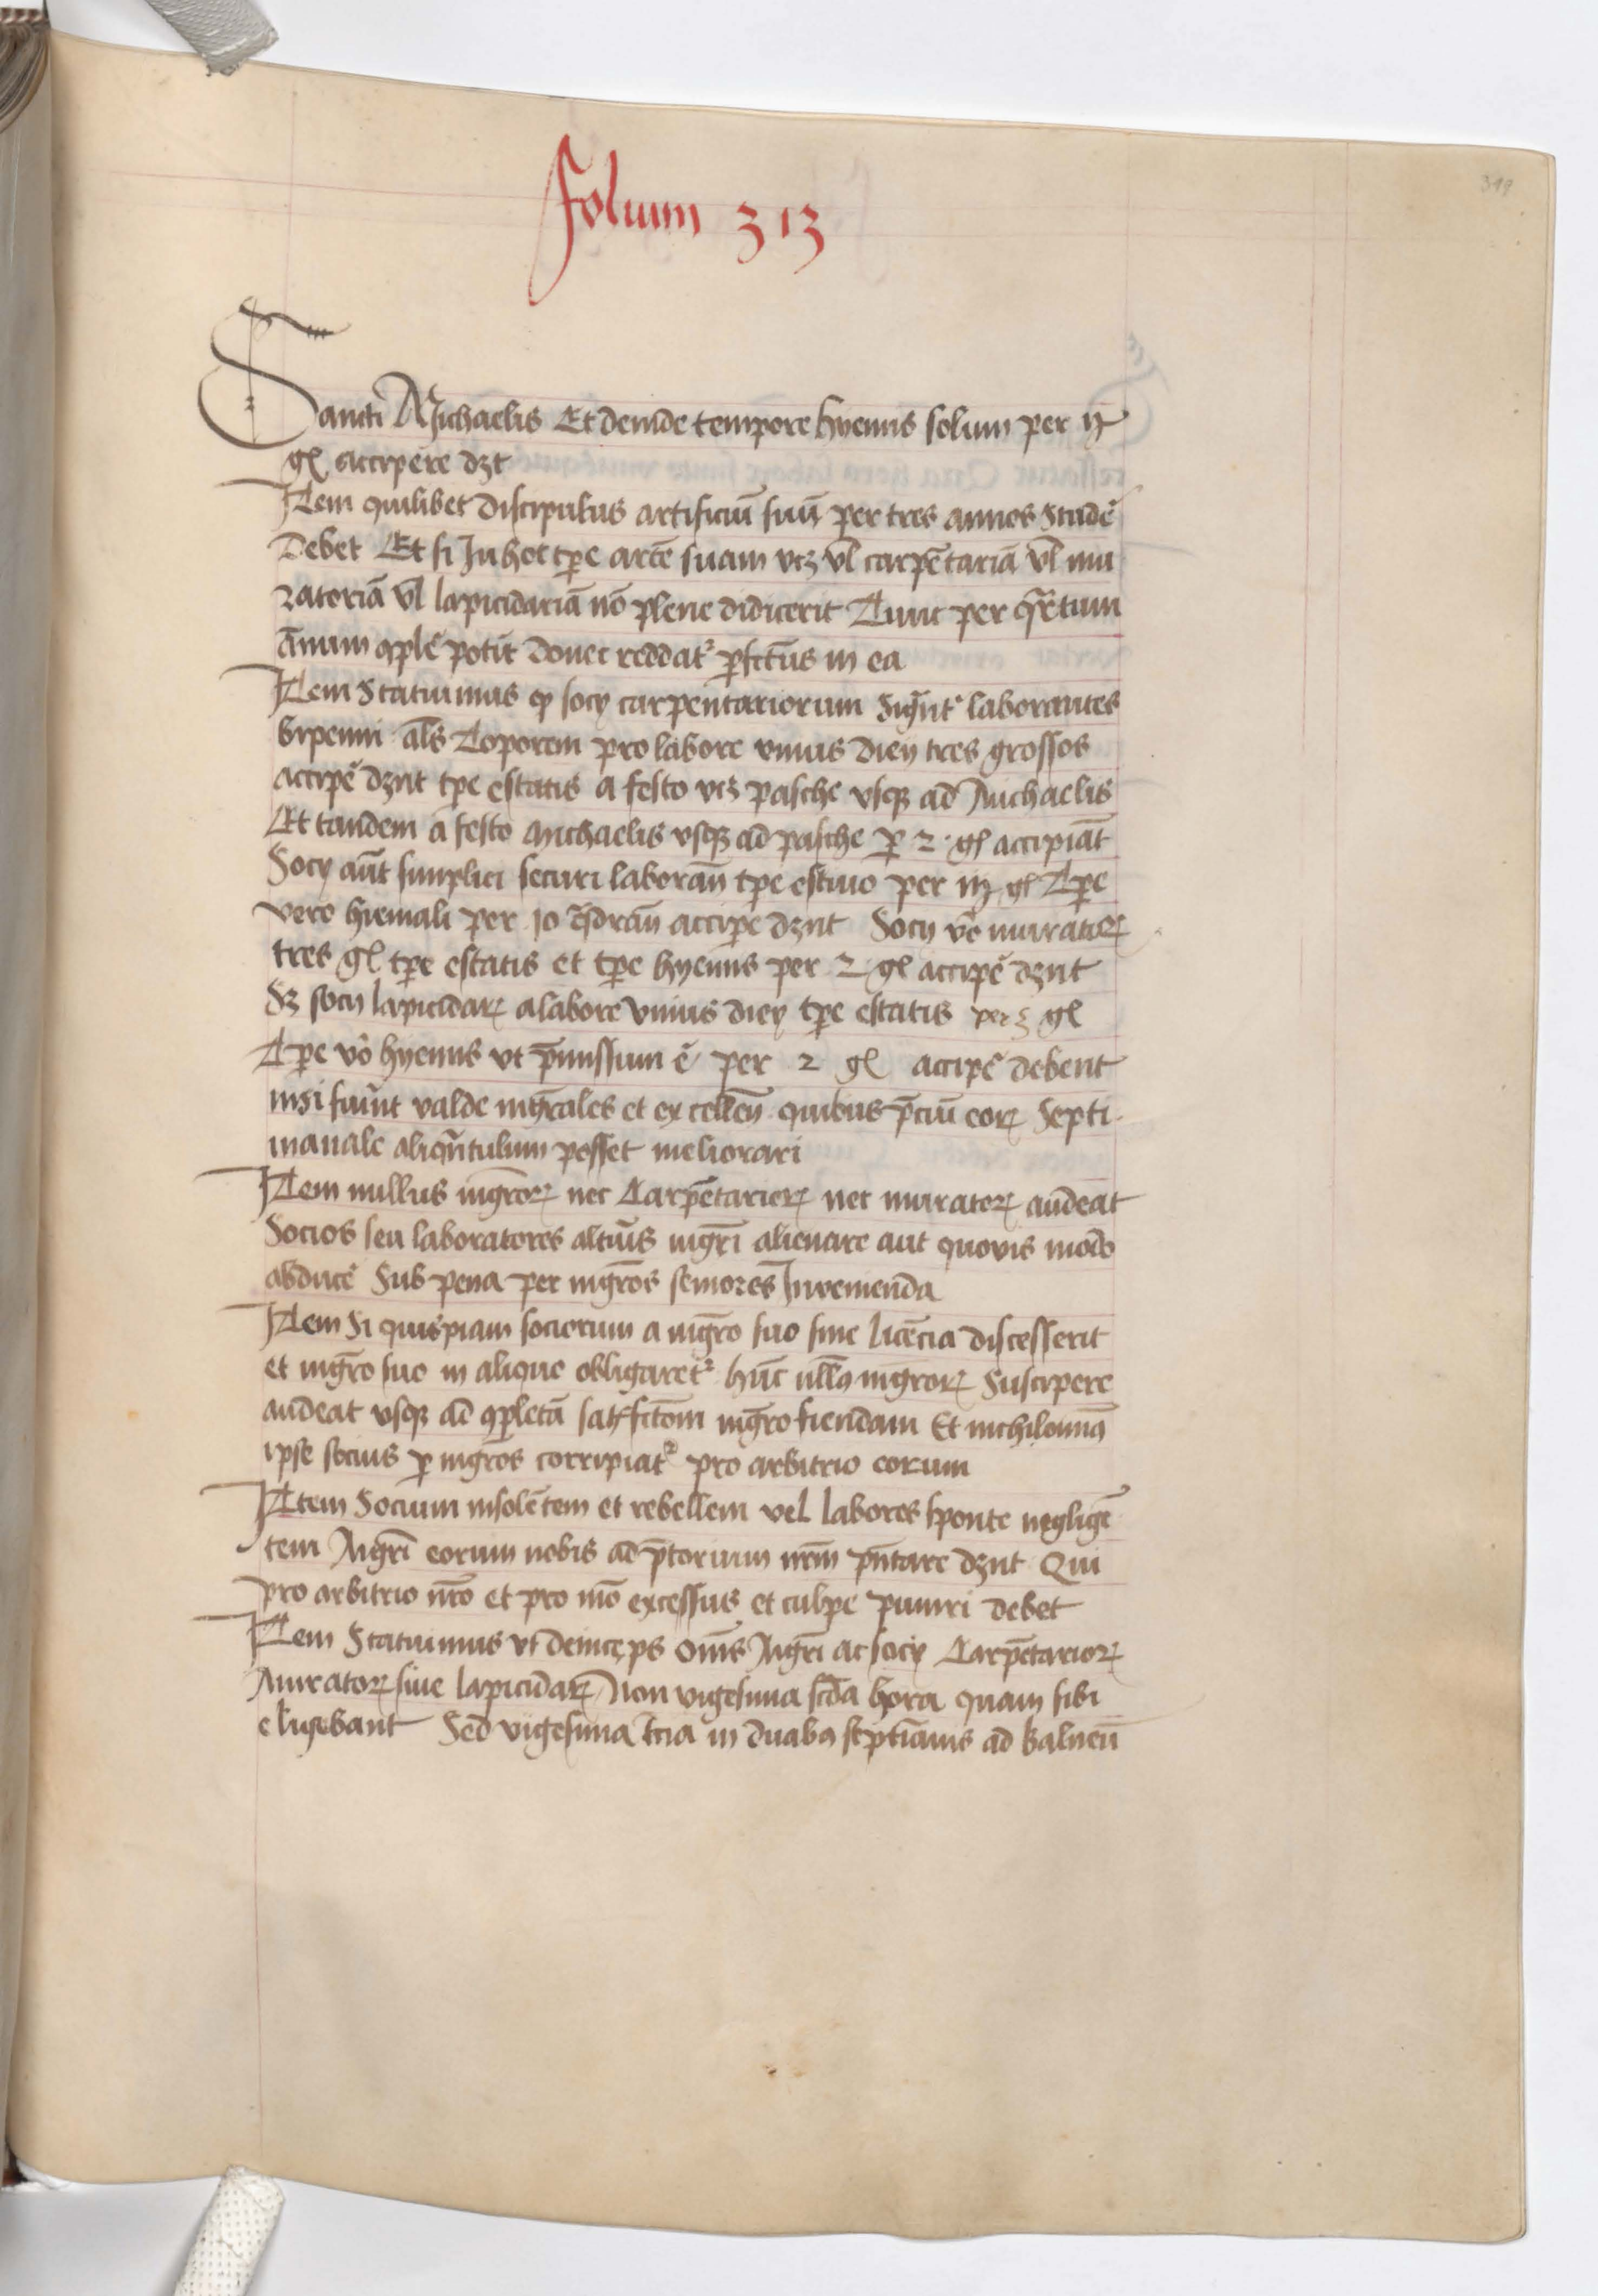 319
Folium 313
Sancti Michaelis Et deinde tempore hyemis solum per ij
gl̃ accipere dzt
Item quilibet discipulus artificiũ suũ per tres annos Studẽ
Debet Et si In hoc tp̃e artẽ suam vcz vl̃ carpẽtariã vl̃ mu
ratoriã vl̃ lapicidariã nõ plene didicerit Tunc per qr̃tum
ãnum ꝯplẽ potit̃ donec reddatꝰ ꝑfctũs in ea
Item Statuimus ꝙ socij carpentariorum Sign̄tꝰ laborantes
bipenni al̃s Toporem pro labore vnius diey tres grossos
accipẽ dznt tp̃e estatis a festo vcz pasche vsqȝ ad Michaelis
Et tandem a festo Michaelis vsqȝ ad pasche ꝑ 2 · gl̃ accipiãt
Socij aũt simplici securi laborañ tp̃e estiuo per iij gl̃ Tp̃e
vero hiemali per 10 q̃drañ accip̃e dznt Socij vẽ muratoꝝ
tres gl̃ tp̃e estatis et tp̃e hyemis per 2 · gl̃ accipẽ dznt
Sz socij lapicidaꝝ a labore vnius diey tp̃e estatis per 3 gl̃
Tp̃e võ hyemis vt p̃missum ẽ per 2 gl̃ accipẽ debent
nisi fuĩnt valde mgr̃ales et excelleñ quibus p̃ciũ eoꝝ Septi-
manale aliqñtulum posset meliorari
Item nullus mgr̃oꝝ nec Carpẽtarioꝝ nec muratoꝝ audeat
Socios seu laboratores altũis mgr̃i alienare aut quovis modo
abducẽ Sub pena per mgr̃os seniores Invenienda
Item Si quispiam sociorum a mgr̃o suo sine licẽcia discesserit
et mgr̃o suo in aliquo obligaretꝰ hũc ullꝰ mgr̃oꝝ Suscipere
audeat vsqȝ ad ꝯpletã satisfctõm mgr̃o fiendam Et nichilominꝰ
ipse socius ꝑ mgr̃os corripiatꝰ pro arbitrio eorum
Item Socium insolẽtem et rebellem vel labores sponte negligẽ
tem Mgr̃i eorum nobis ad p̃torium nr̃m p̃ntare dznt Qui
pro arbitrio nr̃o et pro mõ excessus et culpe puniri debet
Item Statuimus vt deinceps Om̃s Mgr̃i ac socij Carpẽtarioꝝ
Muratoꝝ siue lapicidaꝝ Non vigesima scd̃a hora quam sibi
eligebant Sed vigesima tr̃ia in duabꝰ septĩanis ad balneũ